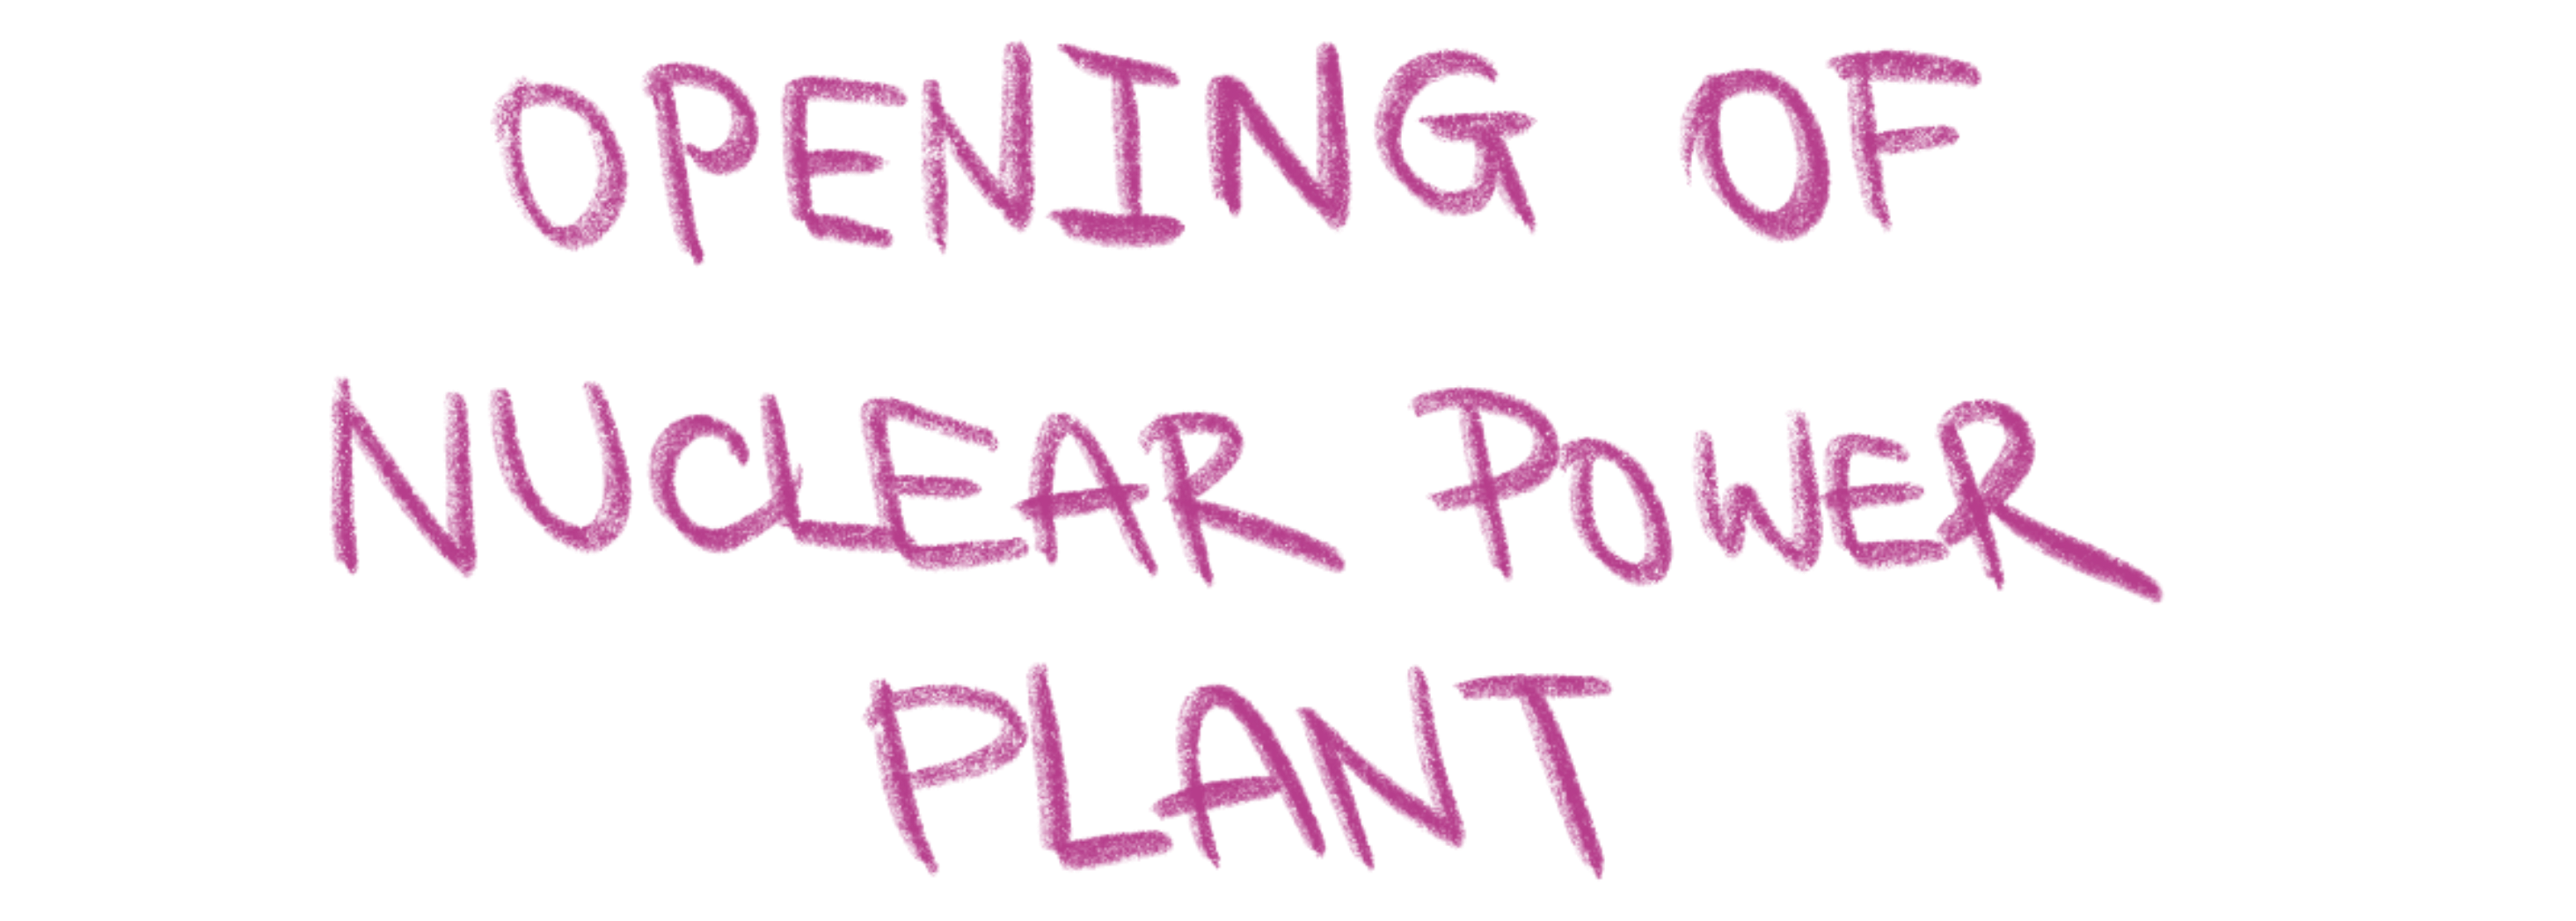 OPENING OF
NUCLEAR POWER
PLANT